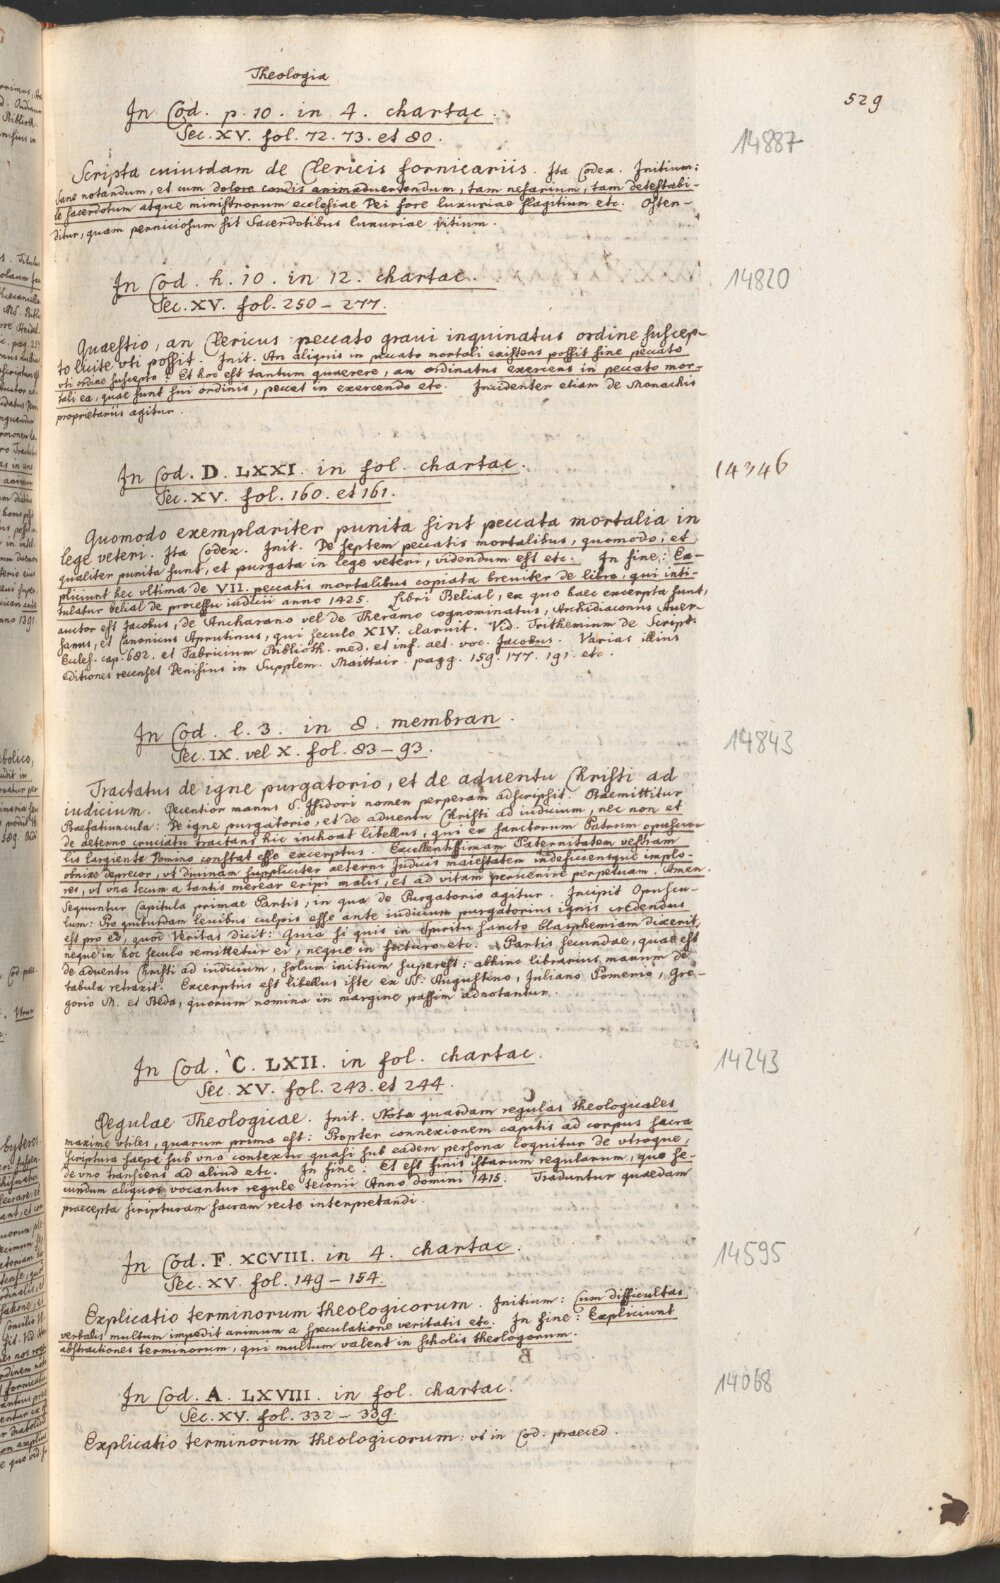 Theologia
529
In Cod. p. 10. in 4. chartac.
Sec. XV. fol. 72. 73. et 80.
14887
Scripta cuiusdam de Clericis fornicariis. Ita Codex. Initium:
Sane notandum, et cum dolore cordis animaduertendum, tam nefarium, tam detestabi-
le sacerdotum atque ministrorum ecclesiae Dei fore luxuriae flagitium etc. Osten-
ditur, quam perniciosum sit Sacerdotibus luxuriae vitium.
In Cod. h. 10. in 12. chartac.
Sec. XV. fol. 250 – 277.
14820
Quaestio, an Clericus peccato graui inquinatus ordine suscep-
to licite vti possit. Init. An aliquis in peccato mortali existens possit sine peccato
vti ordine suscepto? Et hoc est tantum quaerere, an ordinatus exercens in peccato mor-
tali ea, quae sunt sui ordinis, peccet in exercendo etc. Incidenter etiam de Monachis
proprietariis agitur.
In Cod. D. LXXI. in fol. chartac.
Sec. XV. fol. 160. et 161.
14346
Quomodo exemplariter punita sint peccata mortalia in
lege veteri. Ita Codex. Init. De septem peccatis mortalibus, quomodo, et
qualiter punita sunt, et purgata in lege veteri, videndum est etc. In fine: Ex-
pliciunt hec vltima de VII. peccatis mortalibus copiata breuiter de libro, qui inti-
tulatur belial de processu iudicii anno 1425. Libri Belial, ex quo haec excerpta sunt,
auctor est Jacobus, de Ancharano vel de Theramo cognominatus, Archidiaconus Auer-
sanus, et Canonicus Aprutinus, qui seculo XIV. claruit. Vid. Trithemium de Script.
Eccles. cap. 682. et Fabricium Biblioth. med. et inf. aet. voc. Jacobus. Varias illius
editiones recenset Denisius in Supplem. Maittair. pagg. 159. 177. 191. etc.
In Cod. l. 3. in 8. membran.
Sec. IX. vel X. fol. 83 – 93.
14843
Tractatus de igne purgatorio, et de aduentu Christi ad
iudicium. Recentior manus S. Isidori nomen perperam adscripsit. Praemittitur
Praefatiuncula: De igne purgatorio, et de aduentu Christi ad iudicium, nec non et
de aeterno cruciatu tractans hic inchoat libellus, qui ex sanctorum Patrum opuscu-
lis largiente Domino constat esse excerptus. Excellentissimam Paternitatem vestram
obnixe deprecor, vt diuinam suppliciter aeterni Judicis maiestatem indeficientque implo-
res, vt vna tecum a tantis merear eripi malis, et ad vitam peruenire perpetuam. Amen.
Sequuntur Capitula primae Partis, in qua de Purgatorio agitur. Incipit Opuscu-
lum: Pro quibusdam leuibus culpis esse ante iudicium purgatorius ignis credendus
est pro eo, quod Veritas dicit: Quia si quis in Spiritu sancto blasphemiam dixerit,
neque in hoc seculo remittetur ei, neque in futuro etc. Partis secundae, quae est
de aduentu Christi ad iudicium, solum initium superest: abhinc librarius manum de
tabula retraxit. Excerptus est libellus iste ex S. Augustino, Juliano Pomerio, Gre-
gorio M. et Beda, quorum nomina in margine passim adnotantur.
In Cod. C. LXII. in fol. chartac.
Sec. XV. fol. 243. et 244.
14243
Regulae Theologicae. Init. Nota quasdam regulas theologicales
maxime vtiles, quarum prima est: Propter connexionem capitis ad corpus sacra
scriptura saepe sub vno contextu quasi sub eadem persona loquitur de vtroque,
de vno transiens ad aliud etc. In fine: Et est finis istarum regularum, quo se-
cundum aliquos vocantur regule teconii Anno domini 1415. Traduntur quaedam
praecepta scripturam sacram recte interpretandi.
In Cod. F. XCVIII. in 4. chartac.
Sec. XV. fol. 149 – 154.
14595
Explicatio terminorum theologicorum. Initium: Cum difficultas
verbalis multum impedit animum a speculatione veritatis etc. In fine: Expliciunt
abstractiones terminorum, qui multum valent in scholis theologorum.
In Cod. A. LXVIII. in fol. chartac.
Sec. XV. fol. 332 – 339.
14068
Explicatio terminorum theologicorum: vt in Cod. praeced.